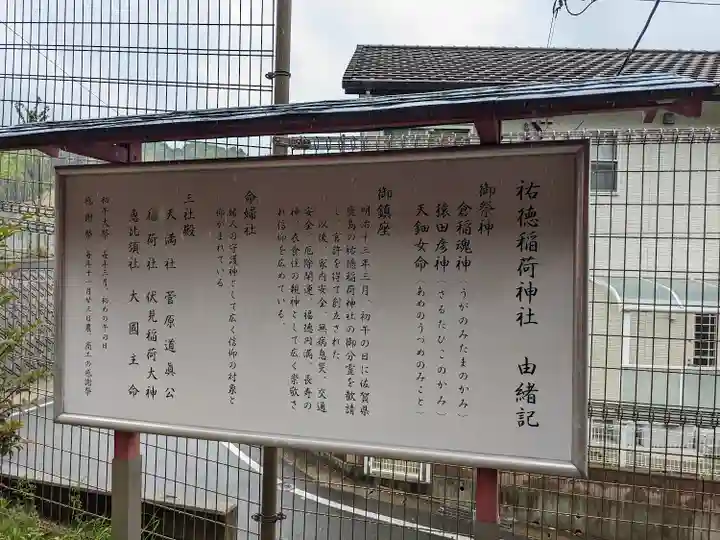 祐徳稲荷神社 由緒記
御祭神
倉稲魂神（うがのみたまのかみ）
猿田彦神（さるたひこのかみ）
天鈿女命（あめのうづめのみこと）
御鎮座
明治十三年三月、初午の日に佐賀県
鹿島の祐徳稲荷神社の御分霊を勧請
し官許を得て創立された。
以後、家内安全、無病息災、交通
安全、厄除開運、福徳円満、長寿の
神、衣食住の親神として広く崇敬さ
れ信仰を広めている。
命婦社
婦人の守護神として広く信仰の対象と
仰がまれている
三社殿
天満社 菅原道真公
稲荷社 伏見稲荷大神
恵比須社 大國主命
初午大祭 毎年三月、初めの午の日
感謝祭 毎年十一月廿三日農、商工の感謝祭